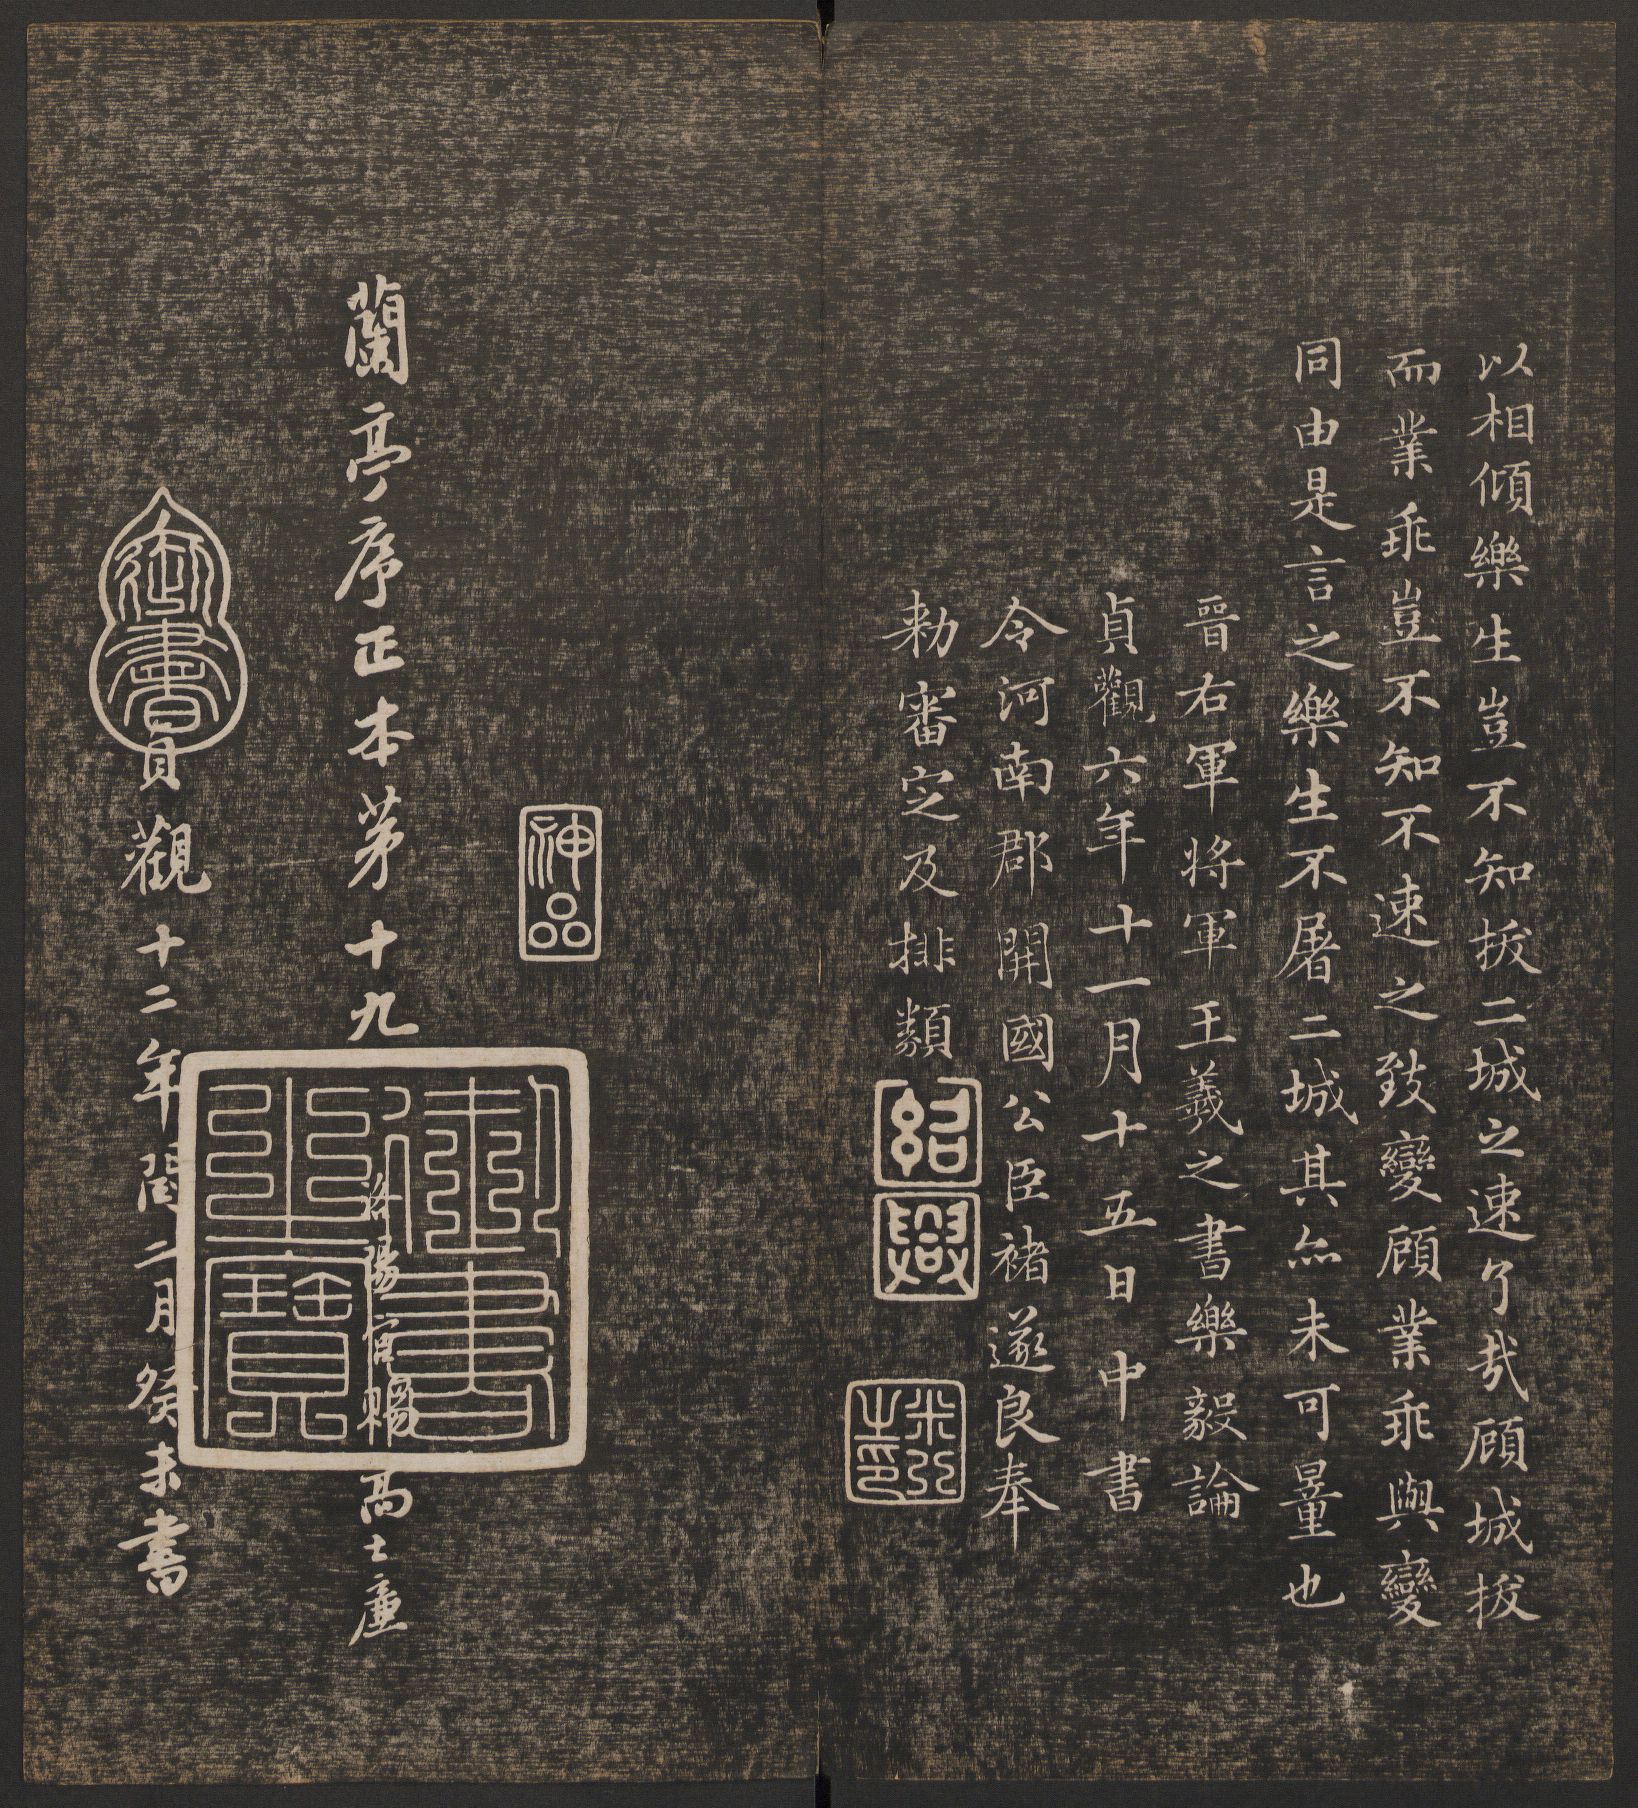 以相傾樂生豈不知拔二城之速了哉顧城拔
而業乖豈不知不速之致變顧業乖與變
同由是言之樂生不屠二城其亦未可量也
晉右軍將軍王羲之書樂毅論
貞觀六年十一月十五日中書
令河南郡開國公臣褚遂良奉
勅審定及排類
紹興
米芾之印
神品
蘭亭序正本第十九
洛陽宮賜高士廉
御書之寶
御書
貞觀十二年閏二月癸未書